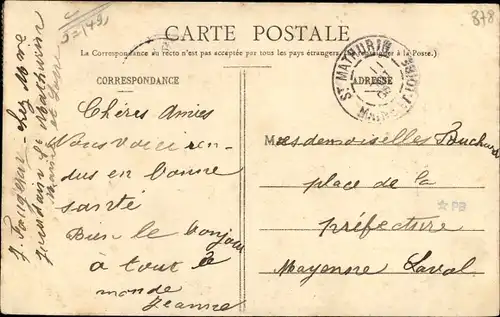 CARTE POSTALE
La Correspondance au recto n'est pas acceptée par tous les pays étrangers à la Poste.)
CORRESPONDANCE
ADRESSE
ST MATHURIN
MAINE ET LOIRE
Chères Amies
Nous voici ren-
dus en bonne
santé
Bien le bonjour
à tout le
monde
Jeanne
Mesdemoiselles
place de la
préfecture
Mayenne Laval
chez Mme
St Mathurin
Maine et Loire
878
PB